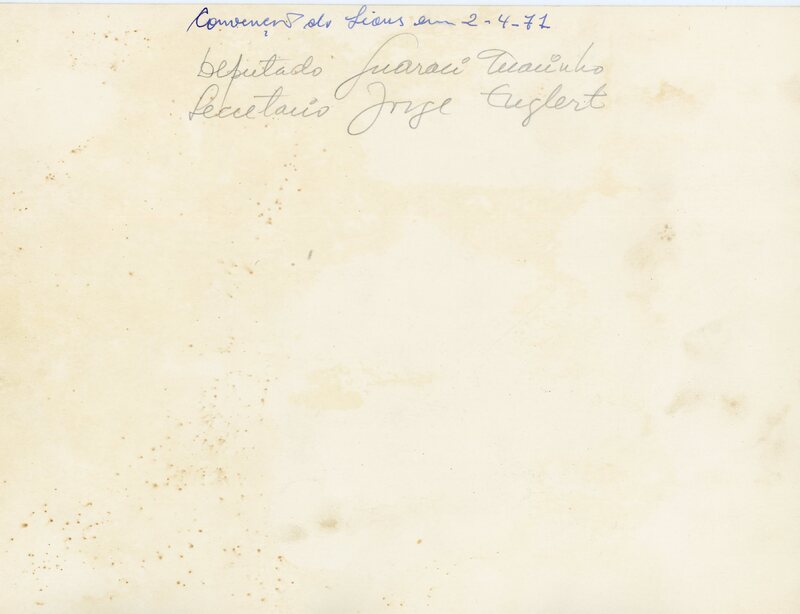 Convenção do Lions em 2-4-71
Deputado Guaraci Marinho
Secretario Jorge Englert